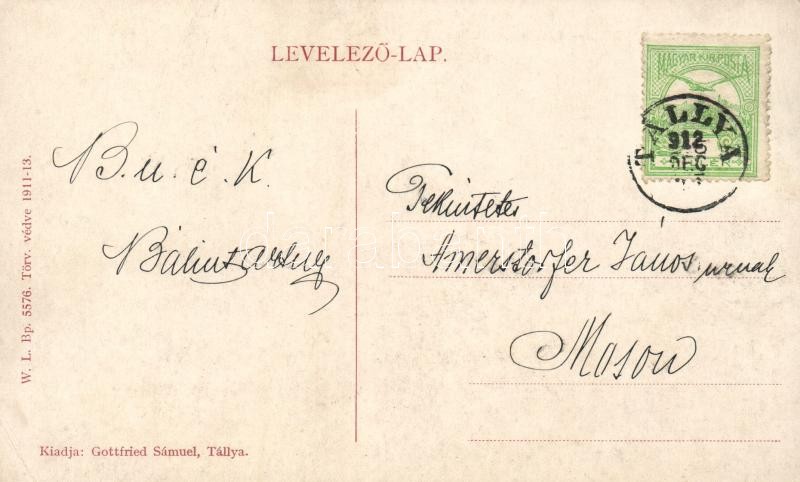 LEVELEZŐ-LAP.
MAGYAR KIR. POSTA
TÁLLYA
912
DEC
B. u. é. K.
Bálint
Tekintetes
Amerstorfer János urnak
Moson
W. L. Bp. 5576. Törv. védve 1911-13.
Kiadja: Gottfried Sámuel, Tállya.